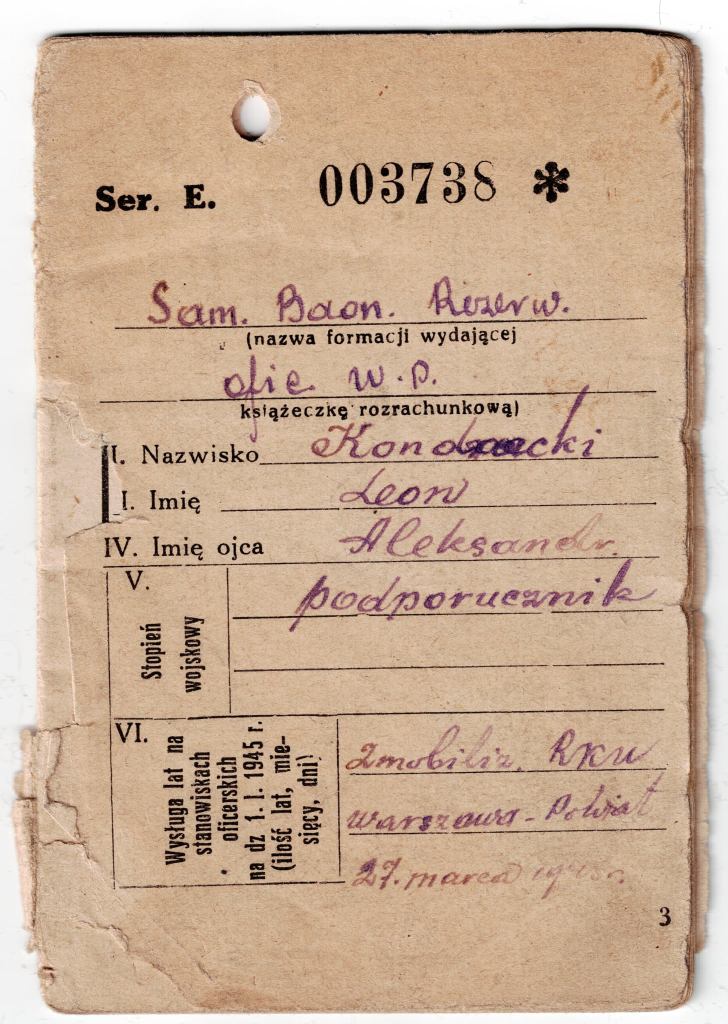 Ser. E. 003738 *
Sam. Baon. Rezerw.
(nazwa formacji wydającej
ofic. W.P.
książeczkę rozrachunkową)
II. Nazwisko Kondracki
I. Imię Leon
IV. Imię ojca Aleksandr.
V.
Stopień
wojskowy
podporucznik
VI.
Wysługa lat na
stanowiskach
oficerskich
na dz 1. I. 1945 r.
(ilość lat, mie-
sięcy, dni)
zmobiliz. RKU
Warszawa - Powiat
27. marca 1945 r.
3